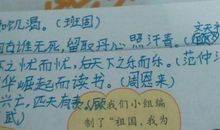 饥渴。(班固)
自古谁无死,留取丹心照汗青。(文天
下之忧而忧,后天下之乐而乐。(范仲
华崛起而读书。(周恩来)
兴亡,匹夫有责。(顾
武)
我们小组编
制了“祖国,我为